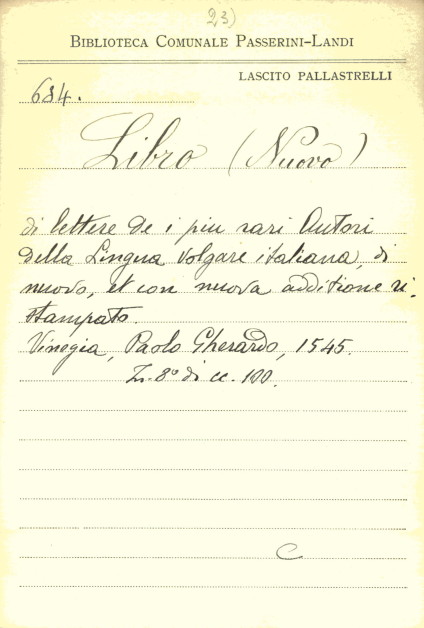 23)
BIBLIOTECA COMUNALE PASSERINI-LANDI
LASCITO PALLASTRELLI
684.
Libro (Nuovo)
di lettere de i piu rari Autori
della Lingua volgare italiana, di
nuovo, et con nuova additione ri-
stampato.
Vinegia, Paolo Gherardo, 1545.
In-8° di cc. 100.
C